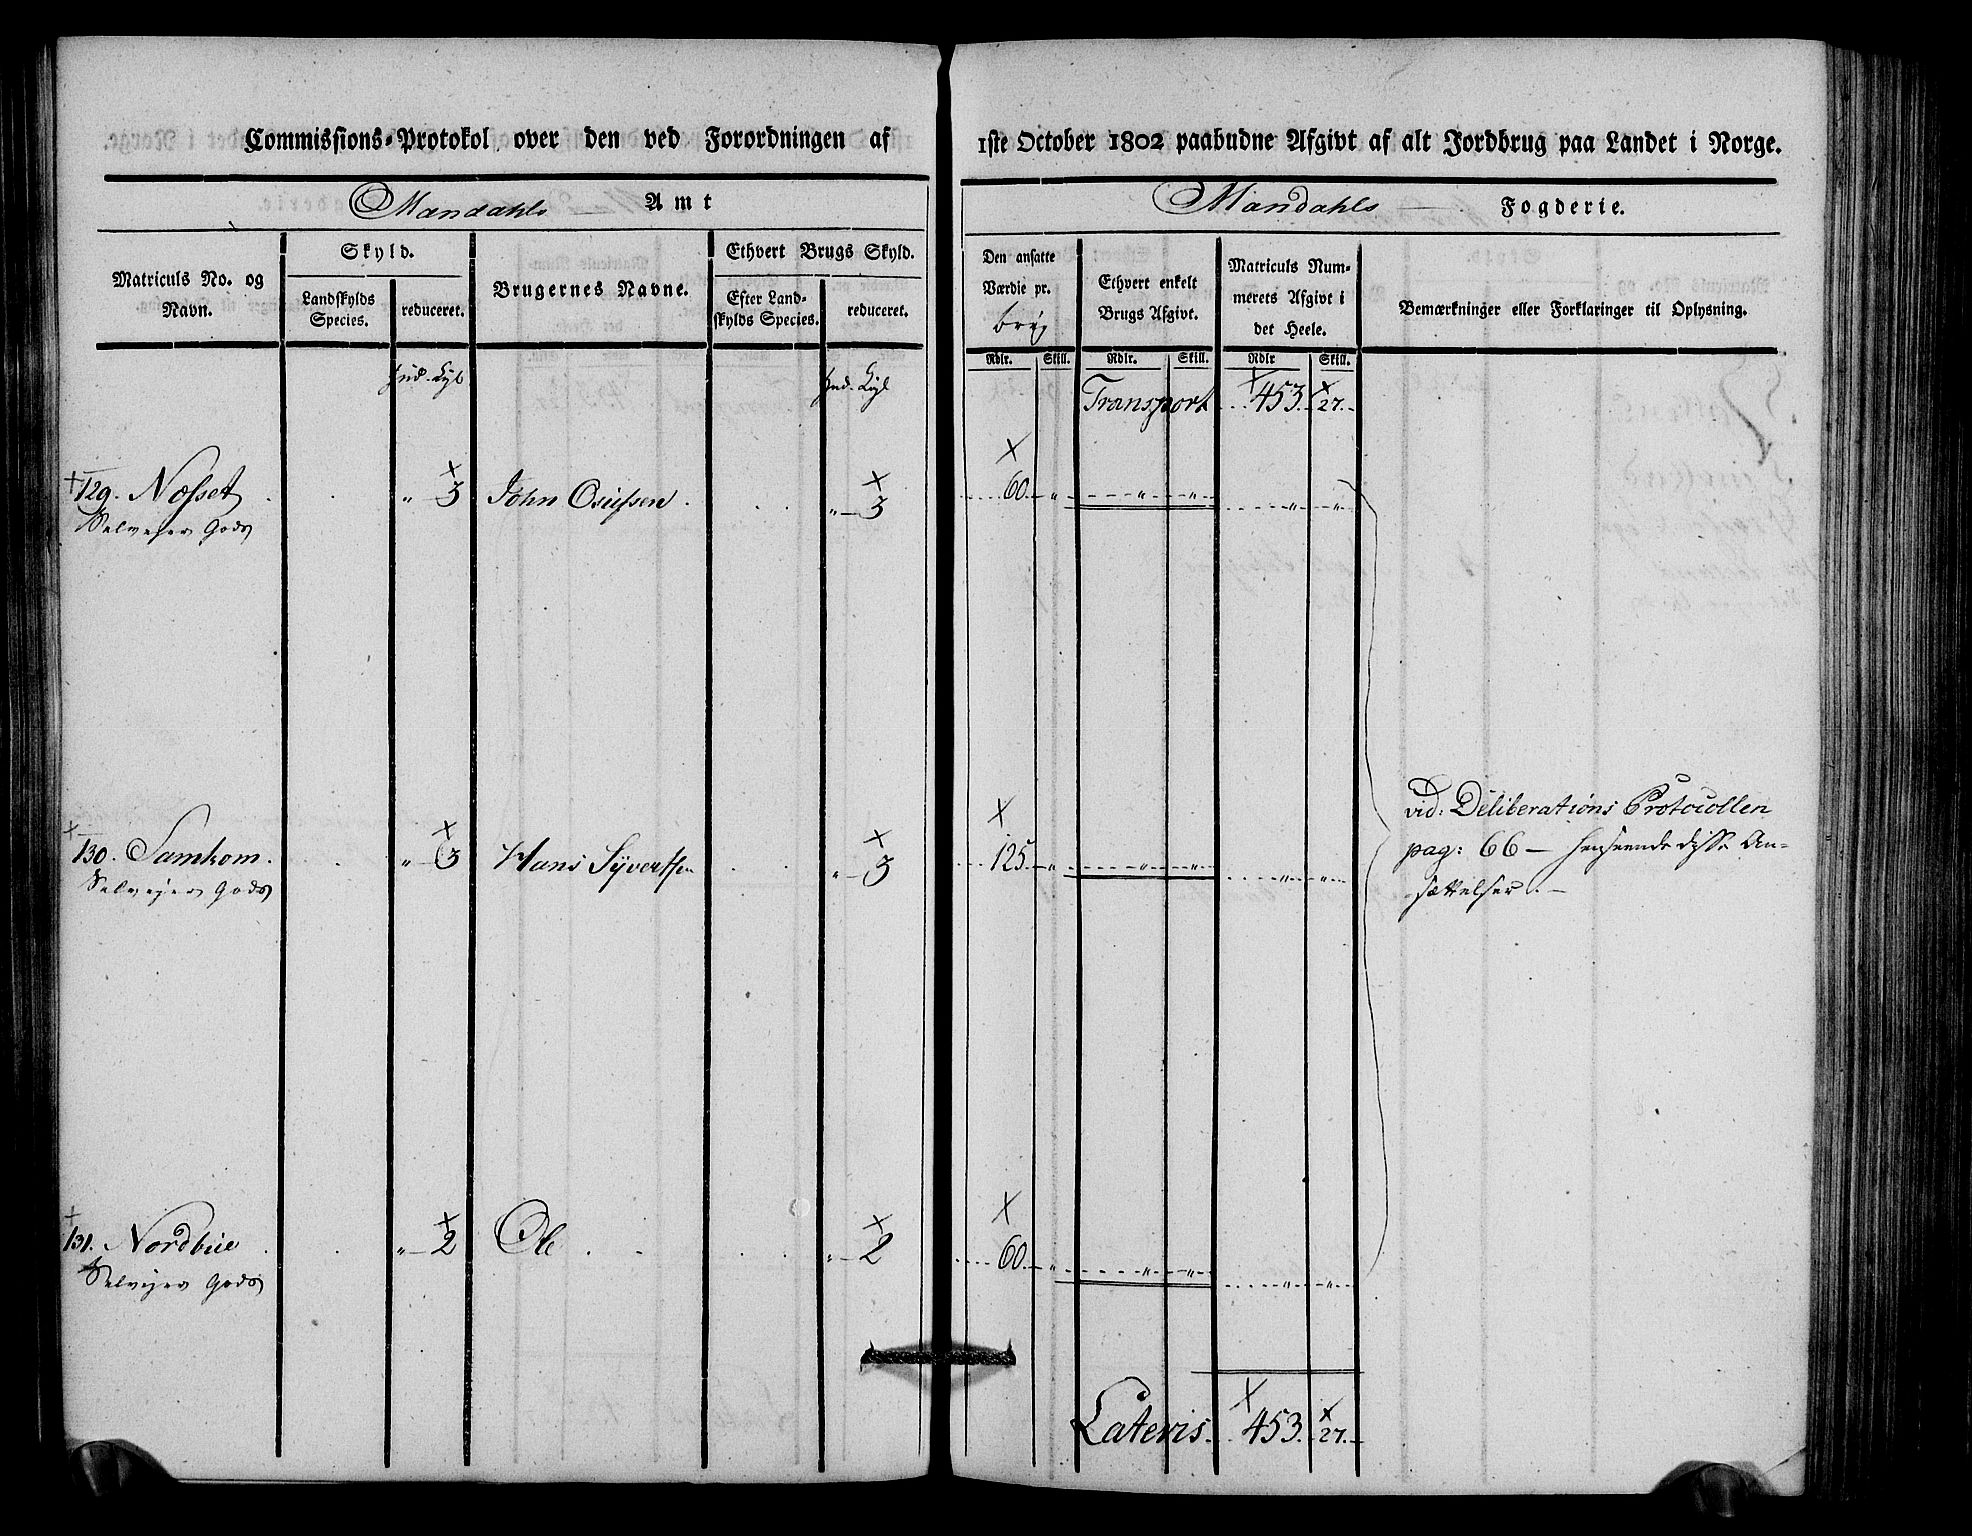 Commissions-Protokol over den ved Forordningen af 1ste October 1802 paabudne Afgivt af alt Jordbrug paa Landet i Norge.
Mandahls Amt
Mandahls Fogderie.
Matriculs No. og Navn.
Skyld.
Landskylds Species.
reduceret.
Brugernes Navne.
Ethvert Brugs Skyld.
Efter Landskylds Species.
reduceret.
Den ansatte Værdie pr.
Rdlr. Skill.
Ethvert enkelt Brugs Afgivt.
Rdlr. Skill.
Matriculs Nummerets Afgivt i det Heele.
Rdlr Skill.
Bemærkninger eller Forklaringer til Oplysning.
Transport 453. 27.
129. Nøsset " 3 John " 3 60 " " " " "
Selvejer Gods
130. Samkom. " 3 Hans Syvertsen " 3 125 " " " " "
Selvejer Gods
vid: Deliberations Protocollen
pag: 66 — henseende disse An-
sættelser. —
131. Nordbüe " 2 Ole " 2 60 " " " " "
Selvejer Gods
Lateris 453. 27.